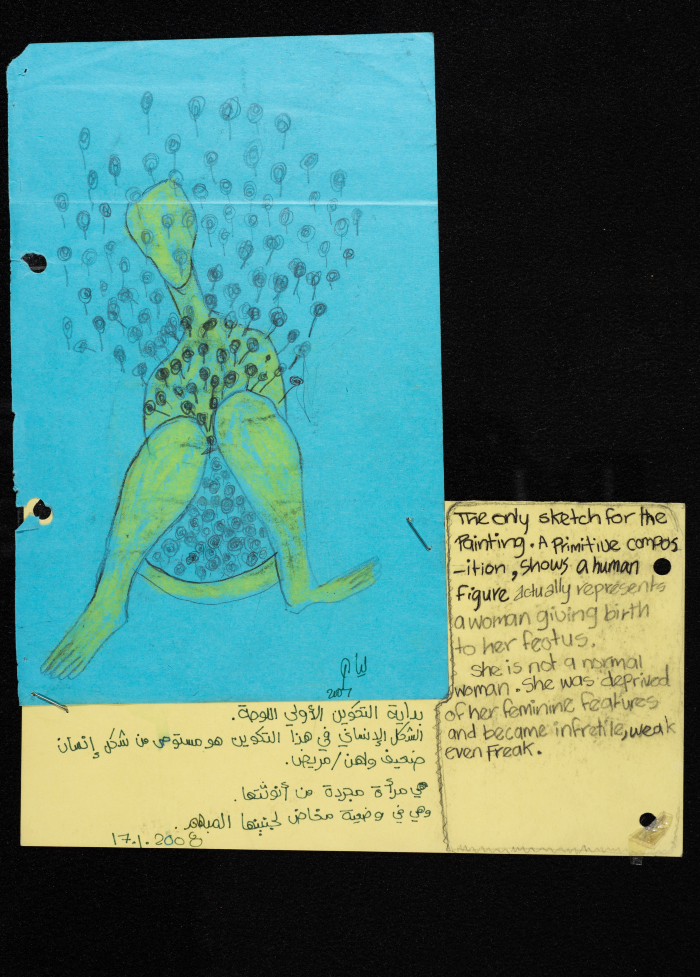 The only sketch for the
Painting. A Primitive compos
-ition, shows a human
Figure actually represents
a woman giving birth
to her feotus.
She is not a normal
woman. She was deprived
of her feminine features
and became infretile, weak
even Freak.
بداية التكوين الأولي للوحة.
الشكل الإنساني في هذا التكوين هو مستوحى من شكل إنسان
ضعيف واهن/مريض.
هي مرأة مجردة من أنوثتها.
وهي في وضعية مخاض لجنينها المبهم.
17.1.2008